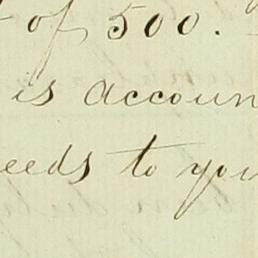 of 500.
is accoun
eeds to you